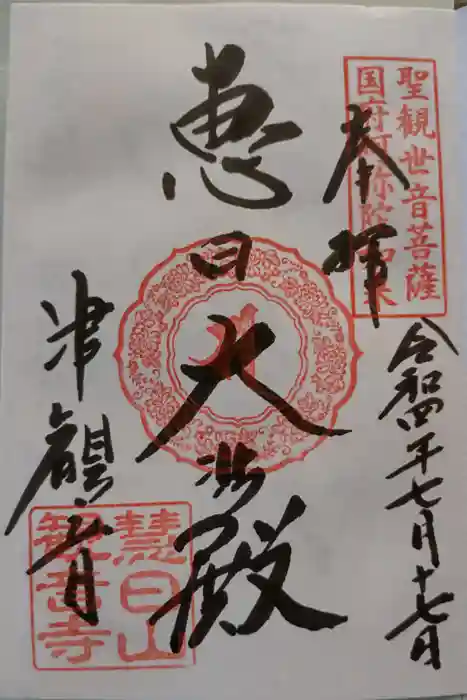 聖観世音菩薩
国府阿弥陀如来
奉拝
令和四年七月十七日
恵日大悲殿
津観音
慧日山
観音寺